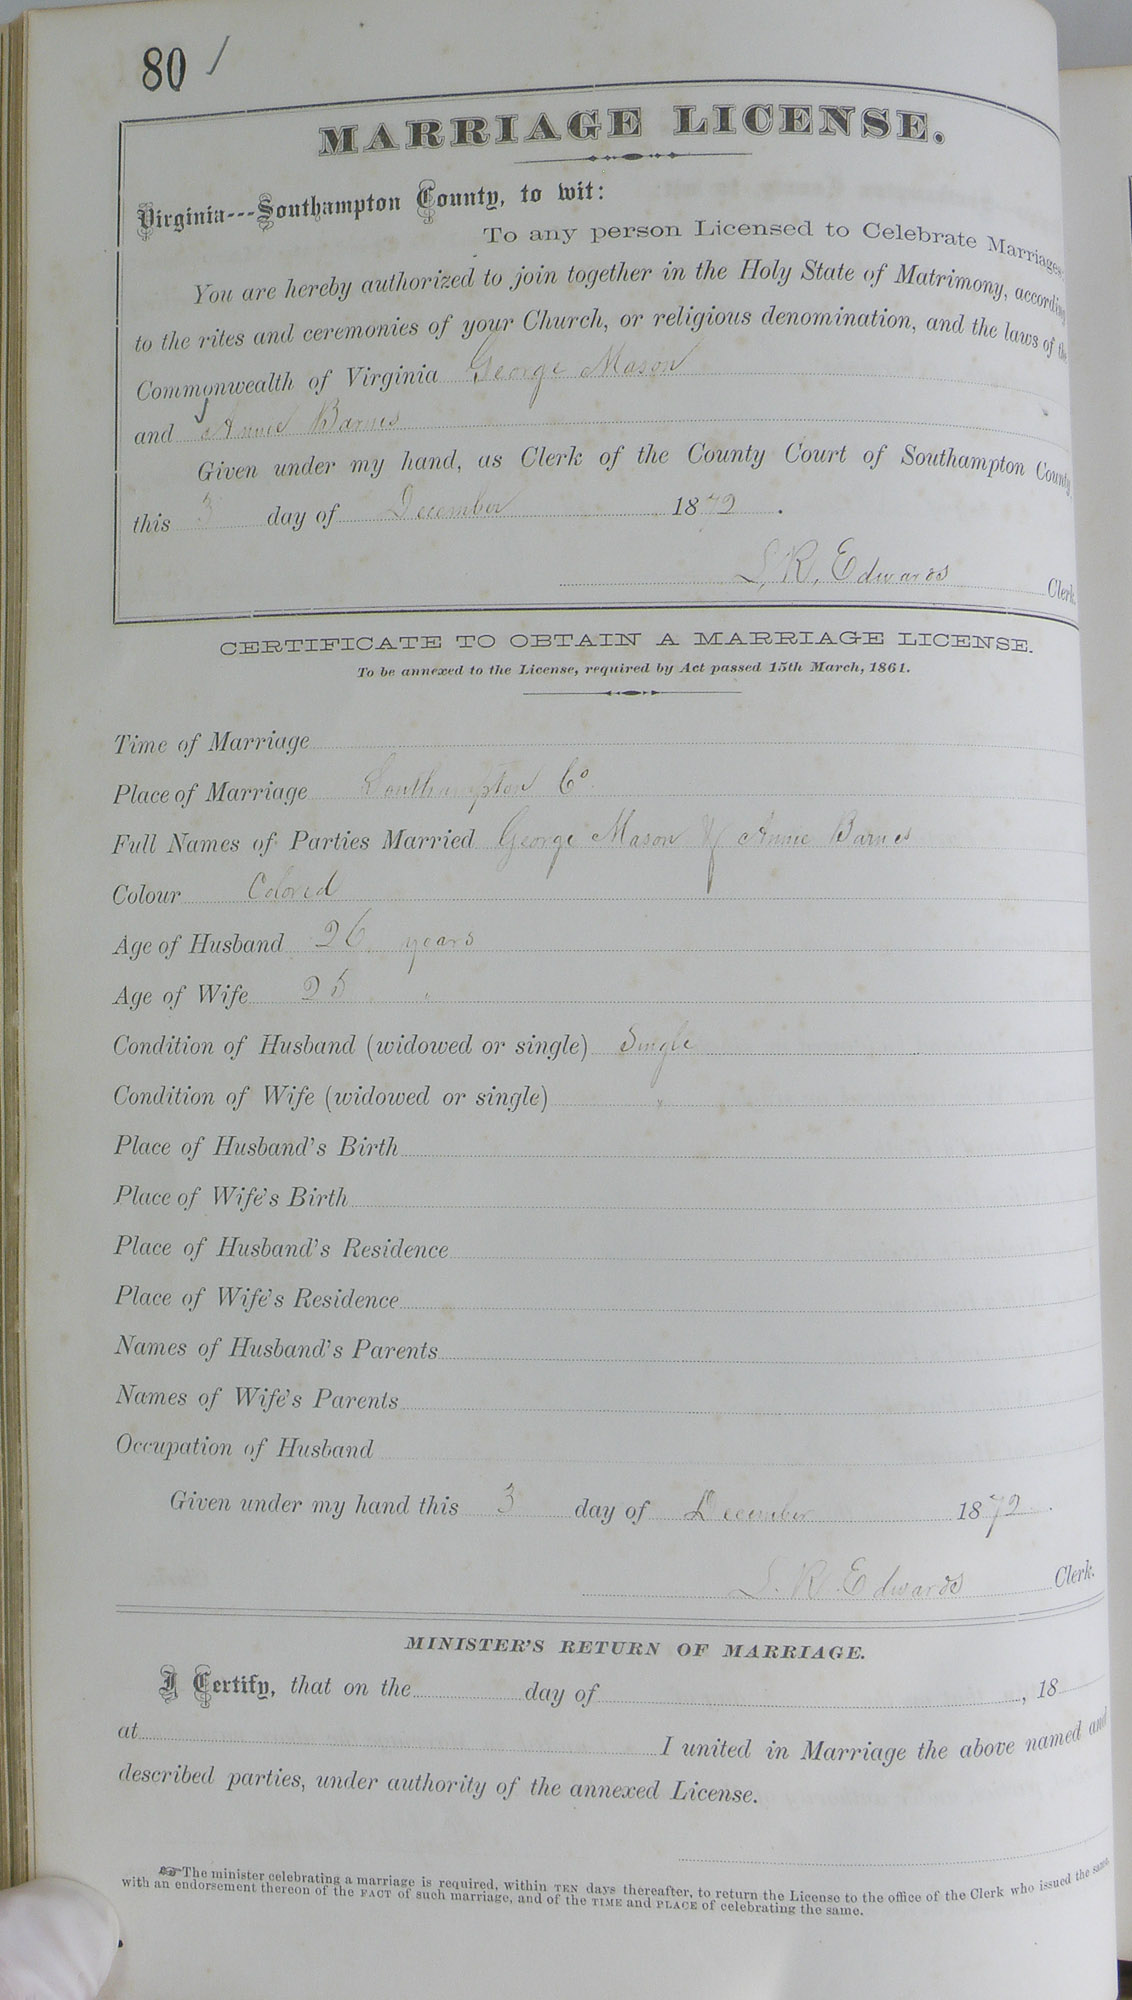 80 /
MARRIAGE LICENSE.
Virginia---Southampton County, to wit:
To any person Licensed to Celebrate Marriages:
You are hereby authorized to join together in the Holy State of Matrimony, according
to the rites and ceremonies of your Church, or religious denomination, and the laws of the
Commonwealth of Virginia George Mason
and Annie Barnes
Given under my hand, as Clerk of the County Court of Southampton County,
this 3 day of December 1872.
L. R. Edwards Clerk.
CERTIFICATE TO OBTAIN A MARRIAGE LICENSE.
To be annexed to the License, required by Act passed 15th March, 1861.
Time of Marriage
Place of Marriage Southampton Co
Full Names of Parties Married George Mason & Annie Barnes
Colour Colored
Age of Husband 26 years
Age of Wife 25 "
Condition of Husband (widowed or single) Single
Condition of Wife (widowed or single) "
Place of Husband's Birth
Place of Wife's Birth
Place of Husband's Residence
Place of Wife's Residence
Names of Husband's Parents
Names of Wife's Parents
Occupation of Husband
Given under my hand this 3 day of December 1872.
L. R. Edwards Clerk.
MINISTER'S RETURN OF MARRIAGE.
I Certify, that on the day of , 18
at I united in Marriage the above named and
described parties, under authority of the annexed License.
☞The minister celebrating a marriage is required, within TEN days thereafter, to return the License to the office of the Clerk who issued the same,
with an endorsement thereon of the FACT of such marriage, and of the TIME and PLACE of celebrating the same.